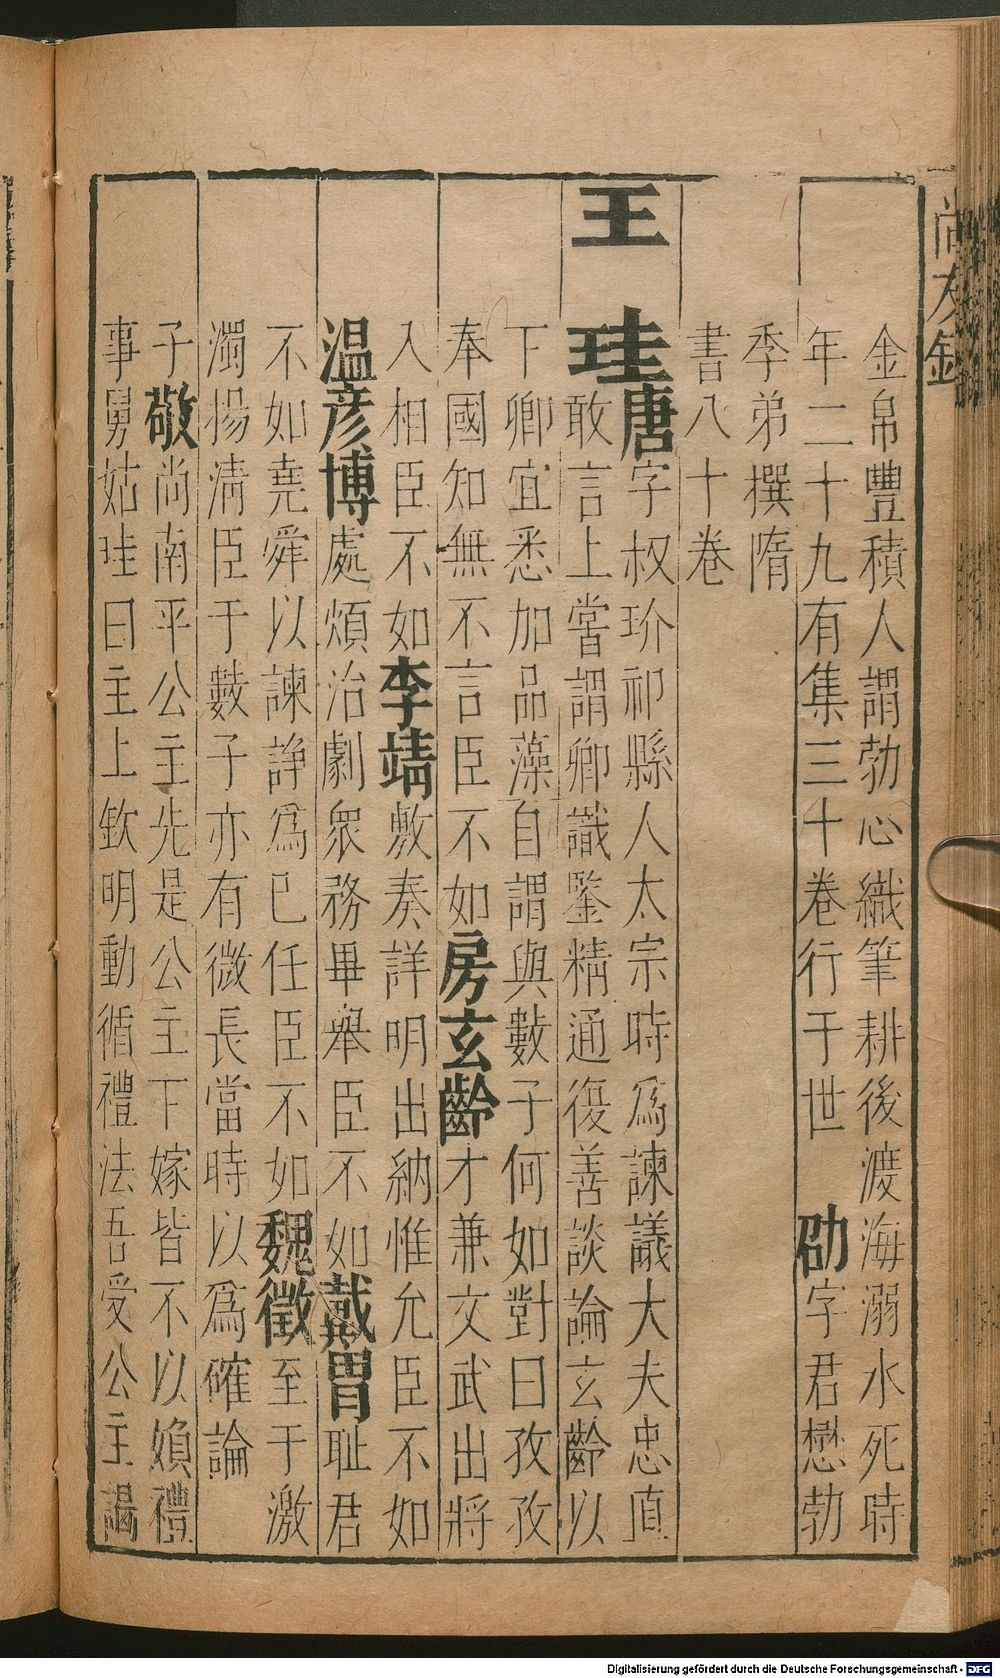 尚友錄
金帛豐積人謂勃心織筆耕後渡海溺水死時
年二十九有集三十卷行于世 劭字君懋勃
季弟撰隋
書八十卷
王 珪唐字叔玠祁縣人太宗時為諫議大夫忠直
敢言上嘗謂卿識鑒精通復善談論玄齡以
下卿宜悉加品藻自謂與數子何如對曰孜孜
奉國知無不言臣不如房玄齡才兼文武出將
入相臣不如李靖敷奏詳明出納惟允臣不如
溫彥博處煩治劇衆務畢舉臣不如戴胄恥君
不如堯舜以諫諍爲已任臣不如魏徵至于激
濁揚清臣于數子亦有微長當時以爲確論
子敬尚南平公主先是公主下嫁皆不以婦禮
事舅姑珪曰主上欽明動循禮法吾受公主謁
Digitalisierung gefördert durch die Deutsche Forschungsgemeinschaft - DFG